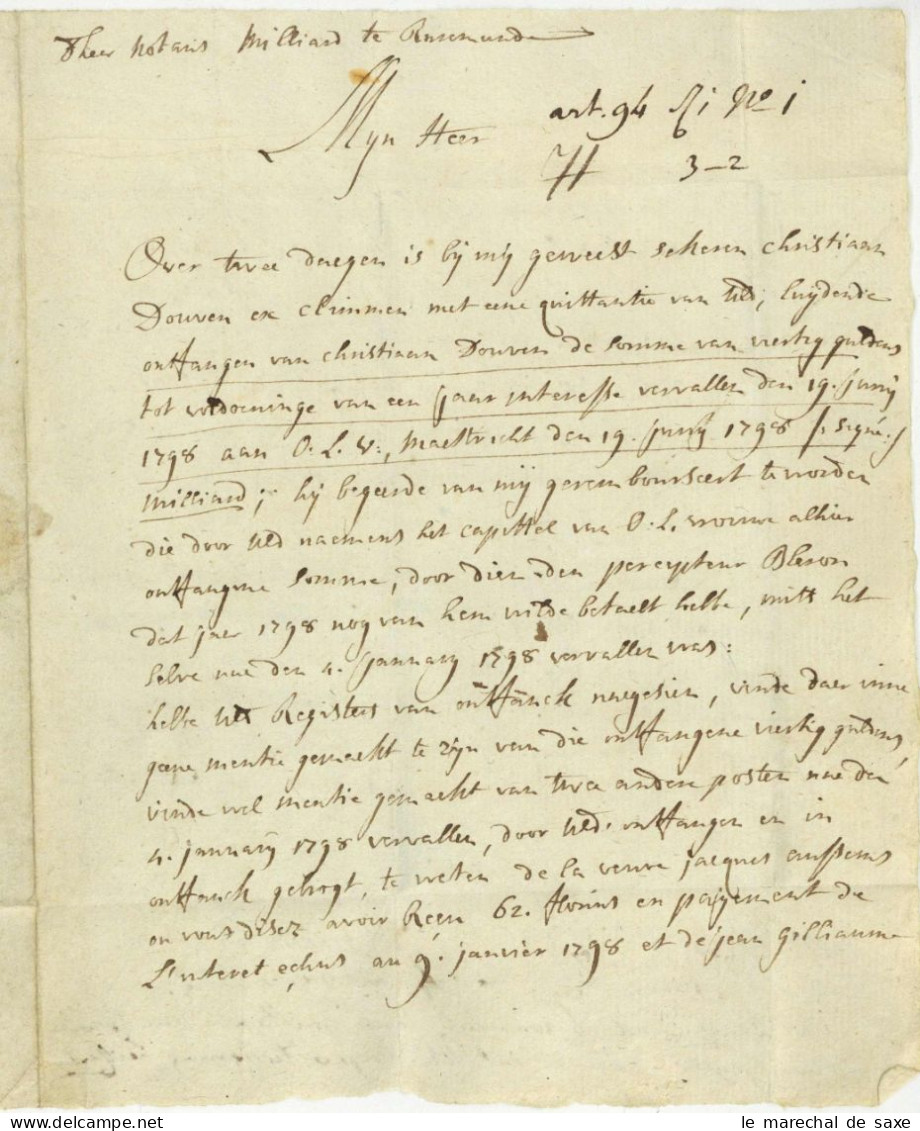 d'heer Notaris Milliard te Ruremunde
Myn Heer
art. 94 No 1
3-2
Over twee daegen is by my geweest sekeren Christiaan
Douven ex Climmen met eene quittantie van Uld; luydende
ontfangen van Christiaan Douven de somme van viertig guldens
tot voldoeninge van een jaer interesse vervallen den 19. Junij
1798 aan O. L. V:, Maestricht den 19. Junij 1798 /: signé :/
Milliard; hy begeerde van mij gerembourseert te worden
die door Uld naemens het Capittel van O. L. vrouwe alhier
ontfangene somme, door dien den percepteur Bleron
dat jaer 1798 nog van hem wilde betaelt hebbe, mits het
selve nae den 4. January 1798 vervallen was:
hebbe Uld Registers van ontfanck naegesien, vinde daer inne
geene mentie gemaekt te zijn van die ontfangene viertig guldens,
vinde wel mentie gemaekt van twee andere posten nae den
4. january 1798 vervallen, door Uld. ontfangen en in
ontfanck gebrogt, te weten de la veuve jacques aussems
ou vous disez avoir Reçu 62. florins en payement de
L'interet echus au 9. janvier 1798 et de jean Gilliaume
le marechal de saxe